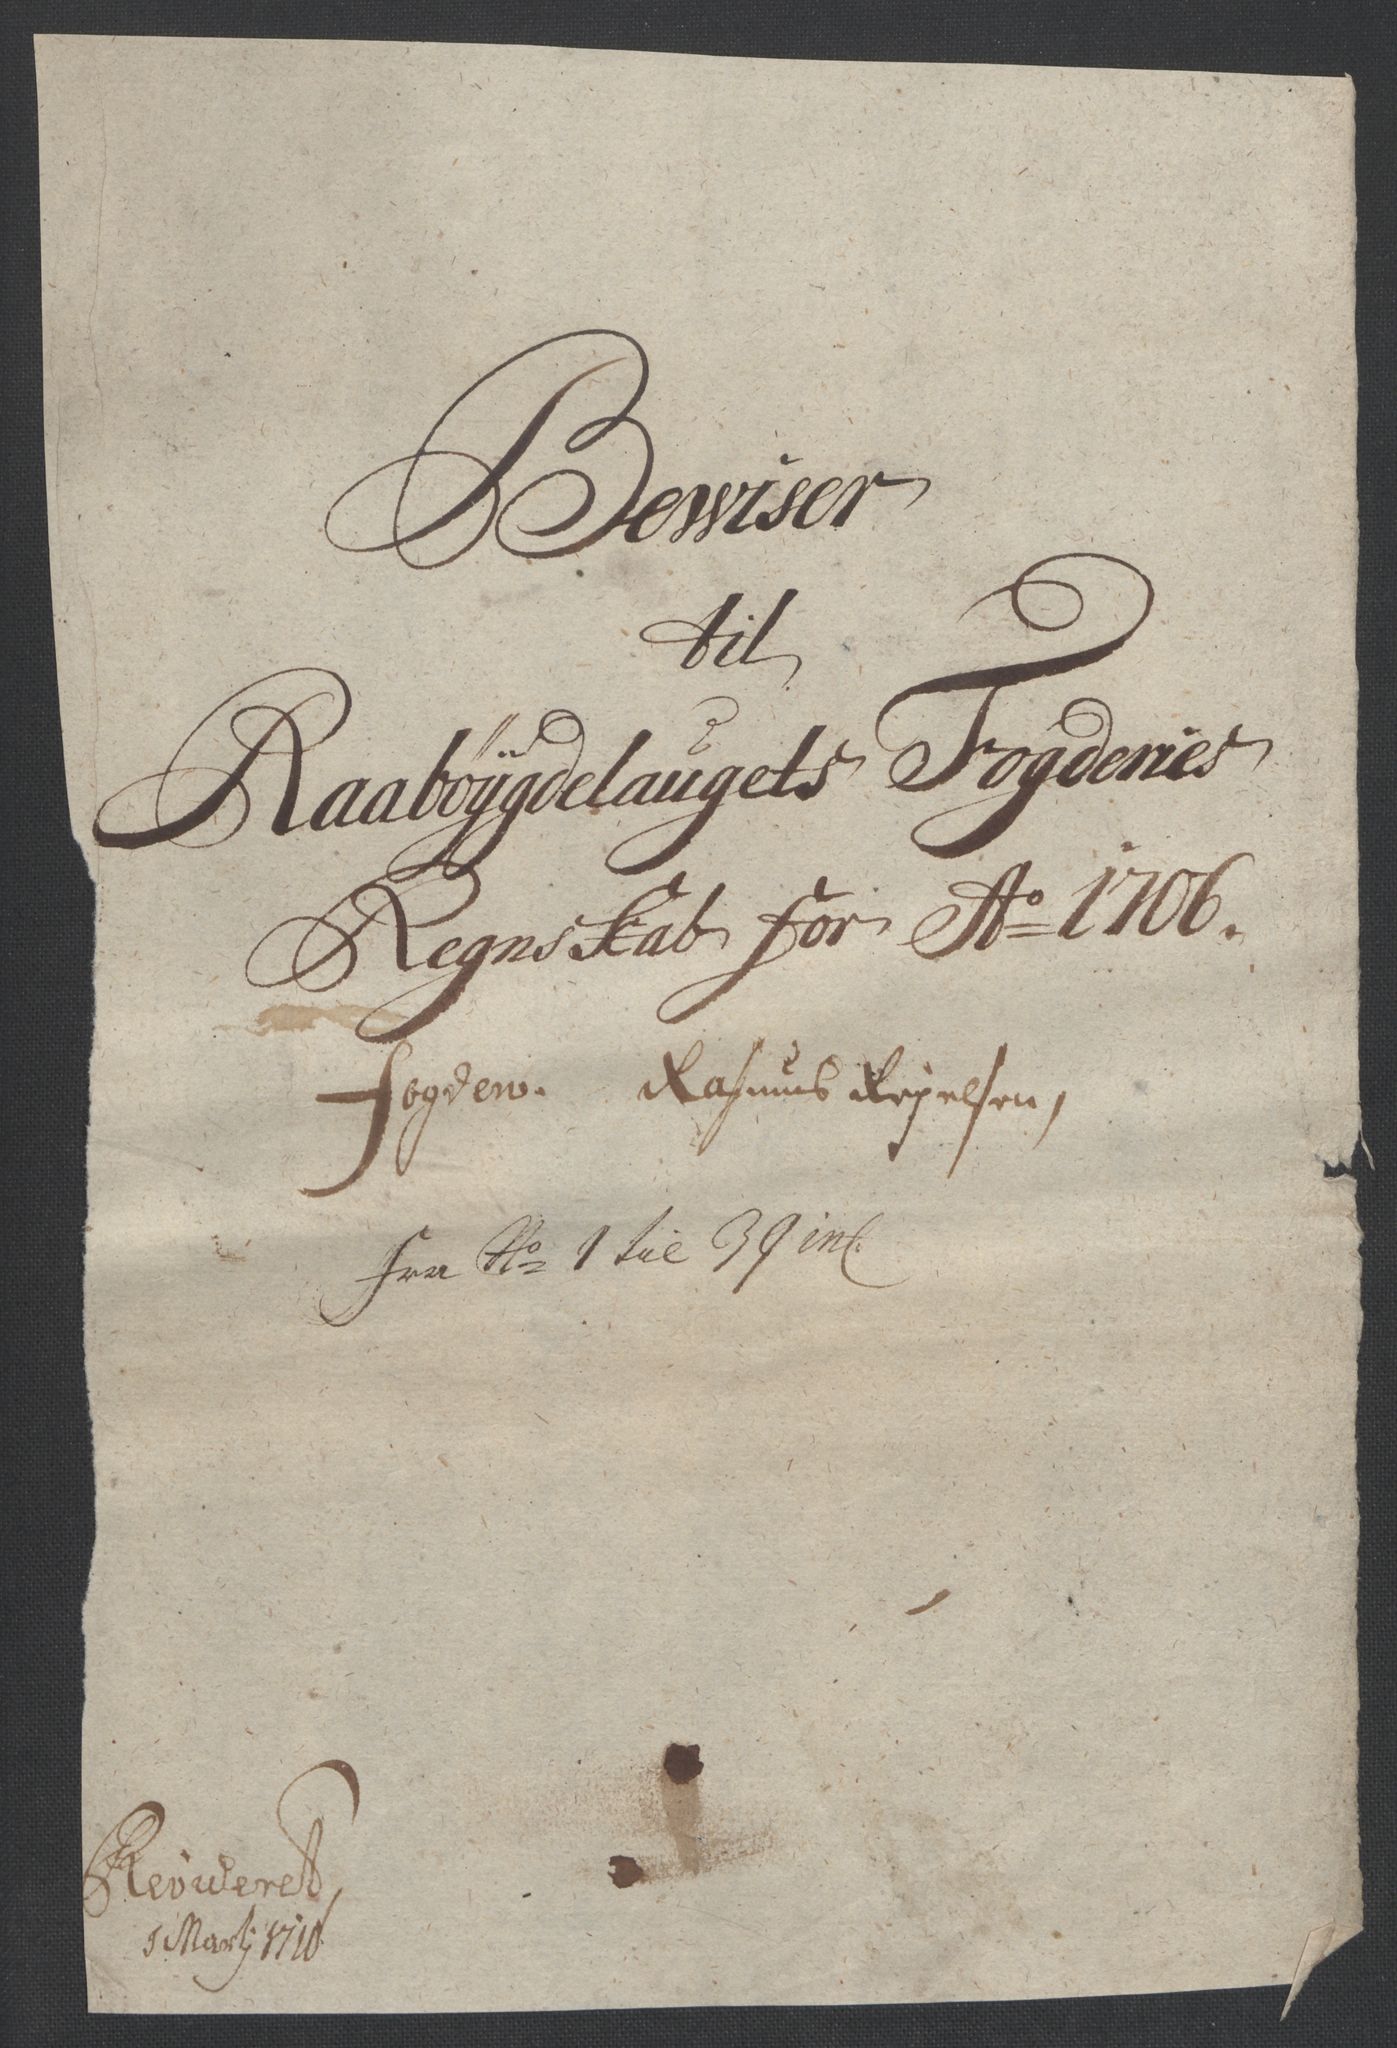 Bewiser
til
Raaböÿgdelaugets Fogderies
Regnskab for Ao 1706.
fogden. Rasmus
fra No 1 til 39 inc.
Revideret
Martj 1710